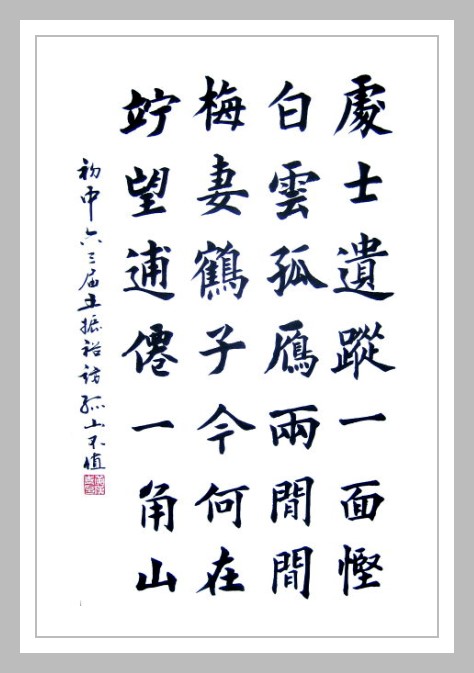 處士遺蹤一面慳
白雲孤鴈兩閒閒
梅妻鶴子今何在
竚望逋僊一角山
初中六三届王振裕訪孤山不值